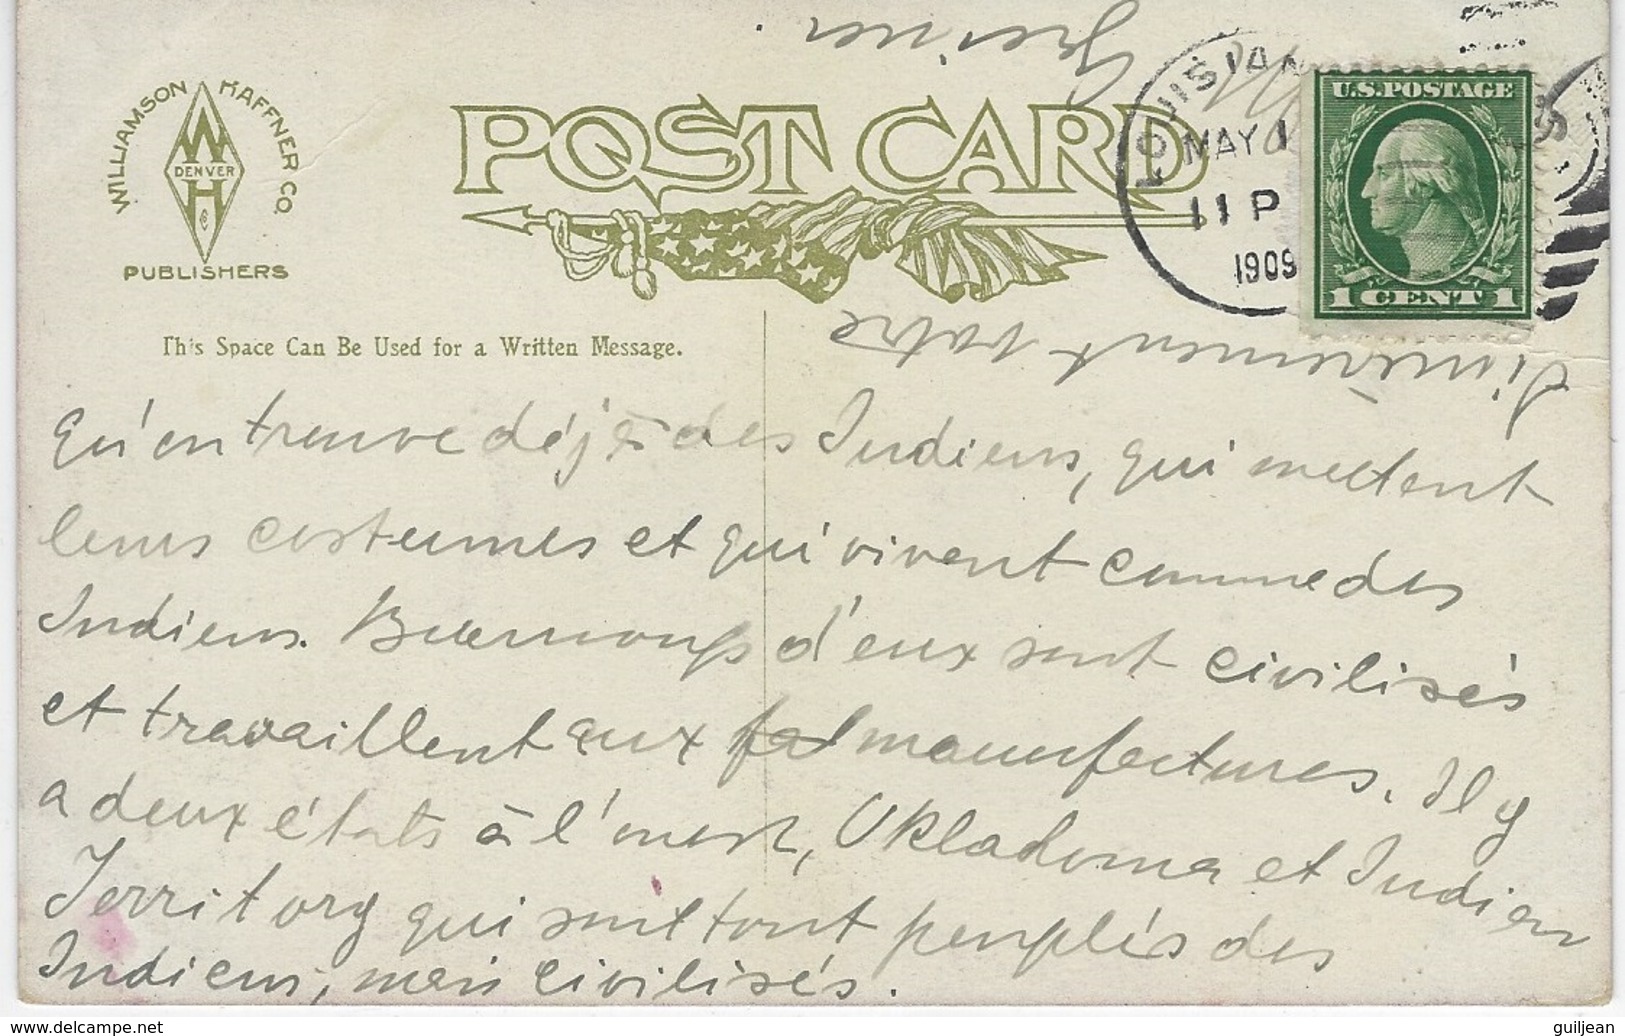 WILLIAMSON HAFFNER CO.
W
DENVER
H
Co
PUBLISHERS
POST CARD
LOUISIANA
MAY 1
11 P
1909
U.S. POSTAGE
1 CENT 1
This Space Can Be Used for a Written Message.
qu'on trouve déjà des Indiens, qui mettent
leurs costumes et qui vivent comme des
Indiens. Beaucoup d'eux sont civilisés
et travaillent aux manufactures. Il y
a deux états à l'ouest, Okladoma et Indien
Territory qui sont tout peuplés des
Indiens, mais civilisés.
Sincèrement votre
www.delcampe.net
guiljean